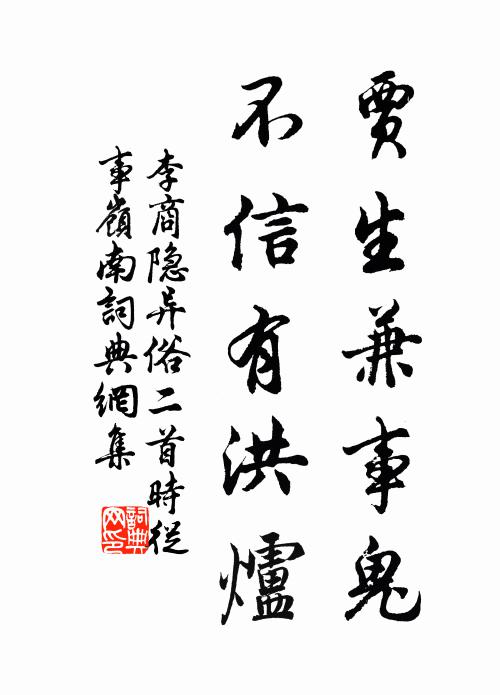 賈生兼事鬼
不信有洪爐
李商隐异俗二首時從
事嶺南詞典網集
詞典网印